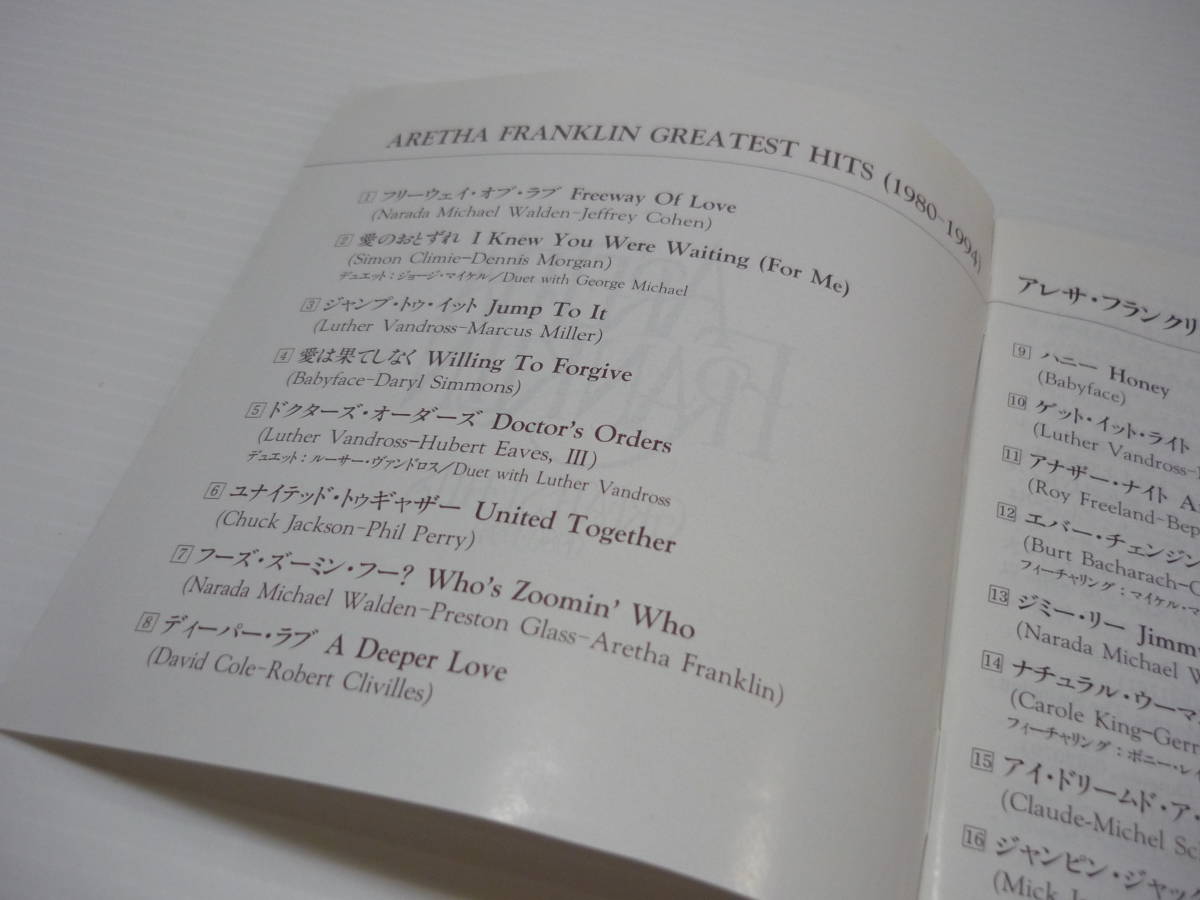 ARETHA FRANKLIN GREATEST HITS (1980-1994)
1 フリーウェイ・オブ・ラブ Freeway Of Love
(Narada Michael Walden-Jeffrey Cohen)
2 愛のおとずれ I Knew You Were Waiting (For Me)
(Simon Climie-Dennis Morgan)
デュエット：ジョージ・マイケル/Duet with George Michael
3 ジャンプ・トゥ・イット Jump To It
(Luther Vandross-Marcus Miller)
4 愛は果てしなく Willing To Forgive
(Babyface-Daryl Simmons)
5 ドクターズ・オーダーズ Doctor's Orders
(Luther Vandross-Hubert Eaves, III)
デュエット：ルーサー・ヴァンドロス/Duet with Luther Vandross
6 ユナイテッド・トゥギャザー United Together
(Chuck Jackson-Phil Perry)
7 フーズ・ズーミン・フー? Who's Zoomin' Who
(Narada Michael Walden-Preston Glass-Aretha Franklin)
8 ディーパー・ラブ A Deeper Love
(David Cole-Robert Clivilles)
アレサ・フランクリ
9 ハニー Honey
(Babyface)
10 ゲット・イット・ライト
(Luther Vandross-
11 アナザー・ナイト A
(Roy Freeland-Bep
12 エバー・チェンジン
(Burt Bacharach-C
フィーチャリング：マイケル・マ
13 ジミー・リー Jimmy
(Narada Michael W
14 ナチュラル・ウーマ
(Carole King-Gerr
フィーチャリング：ボニー・レイ
15 アイ・ドリームド・ア・
(Claude-Michel Sc
16 ジャンピン・ジャック
(Mick J